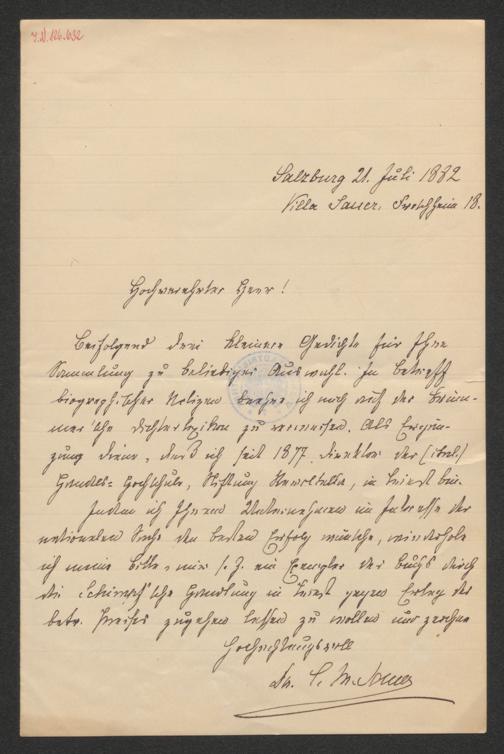 J.N. 126.632
Salzburg 21. Juli 1882
Villa Sauer, Froschheim 18.
Hochverehrter Herr!
Beifolgend drei kleinere Gedichte für Ihre
Sammlung zu beliebiger Auswahl. In betreff
biographischer Notizen beehre ich mich auf das Brüm-
mer'sche Dichterlexikon zu verweisen. Als Ergän-
zung diene, daß ich seit 1877. Direktor der
Handels-Hochschule, Stiftung Revoltella, in Triest bin.
Indem ich Ihrem Unternehmen im Interesse der
nationalen Sache den besten Erfolg wünsche, wiederhole
ich meine Bitte, mir s. Z. ein Exemplar des Buchs durch
die Schimpff'sche Handlung in Triest gegen Erlag des
betr. Preises zugehen lassen zu wollen und zeichne
Hochachtungsvoll
Dr.